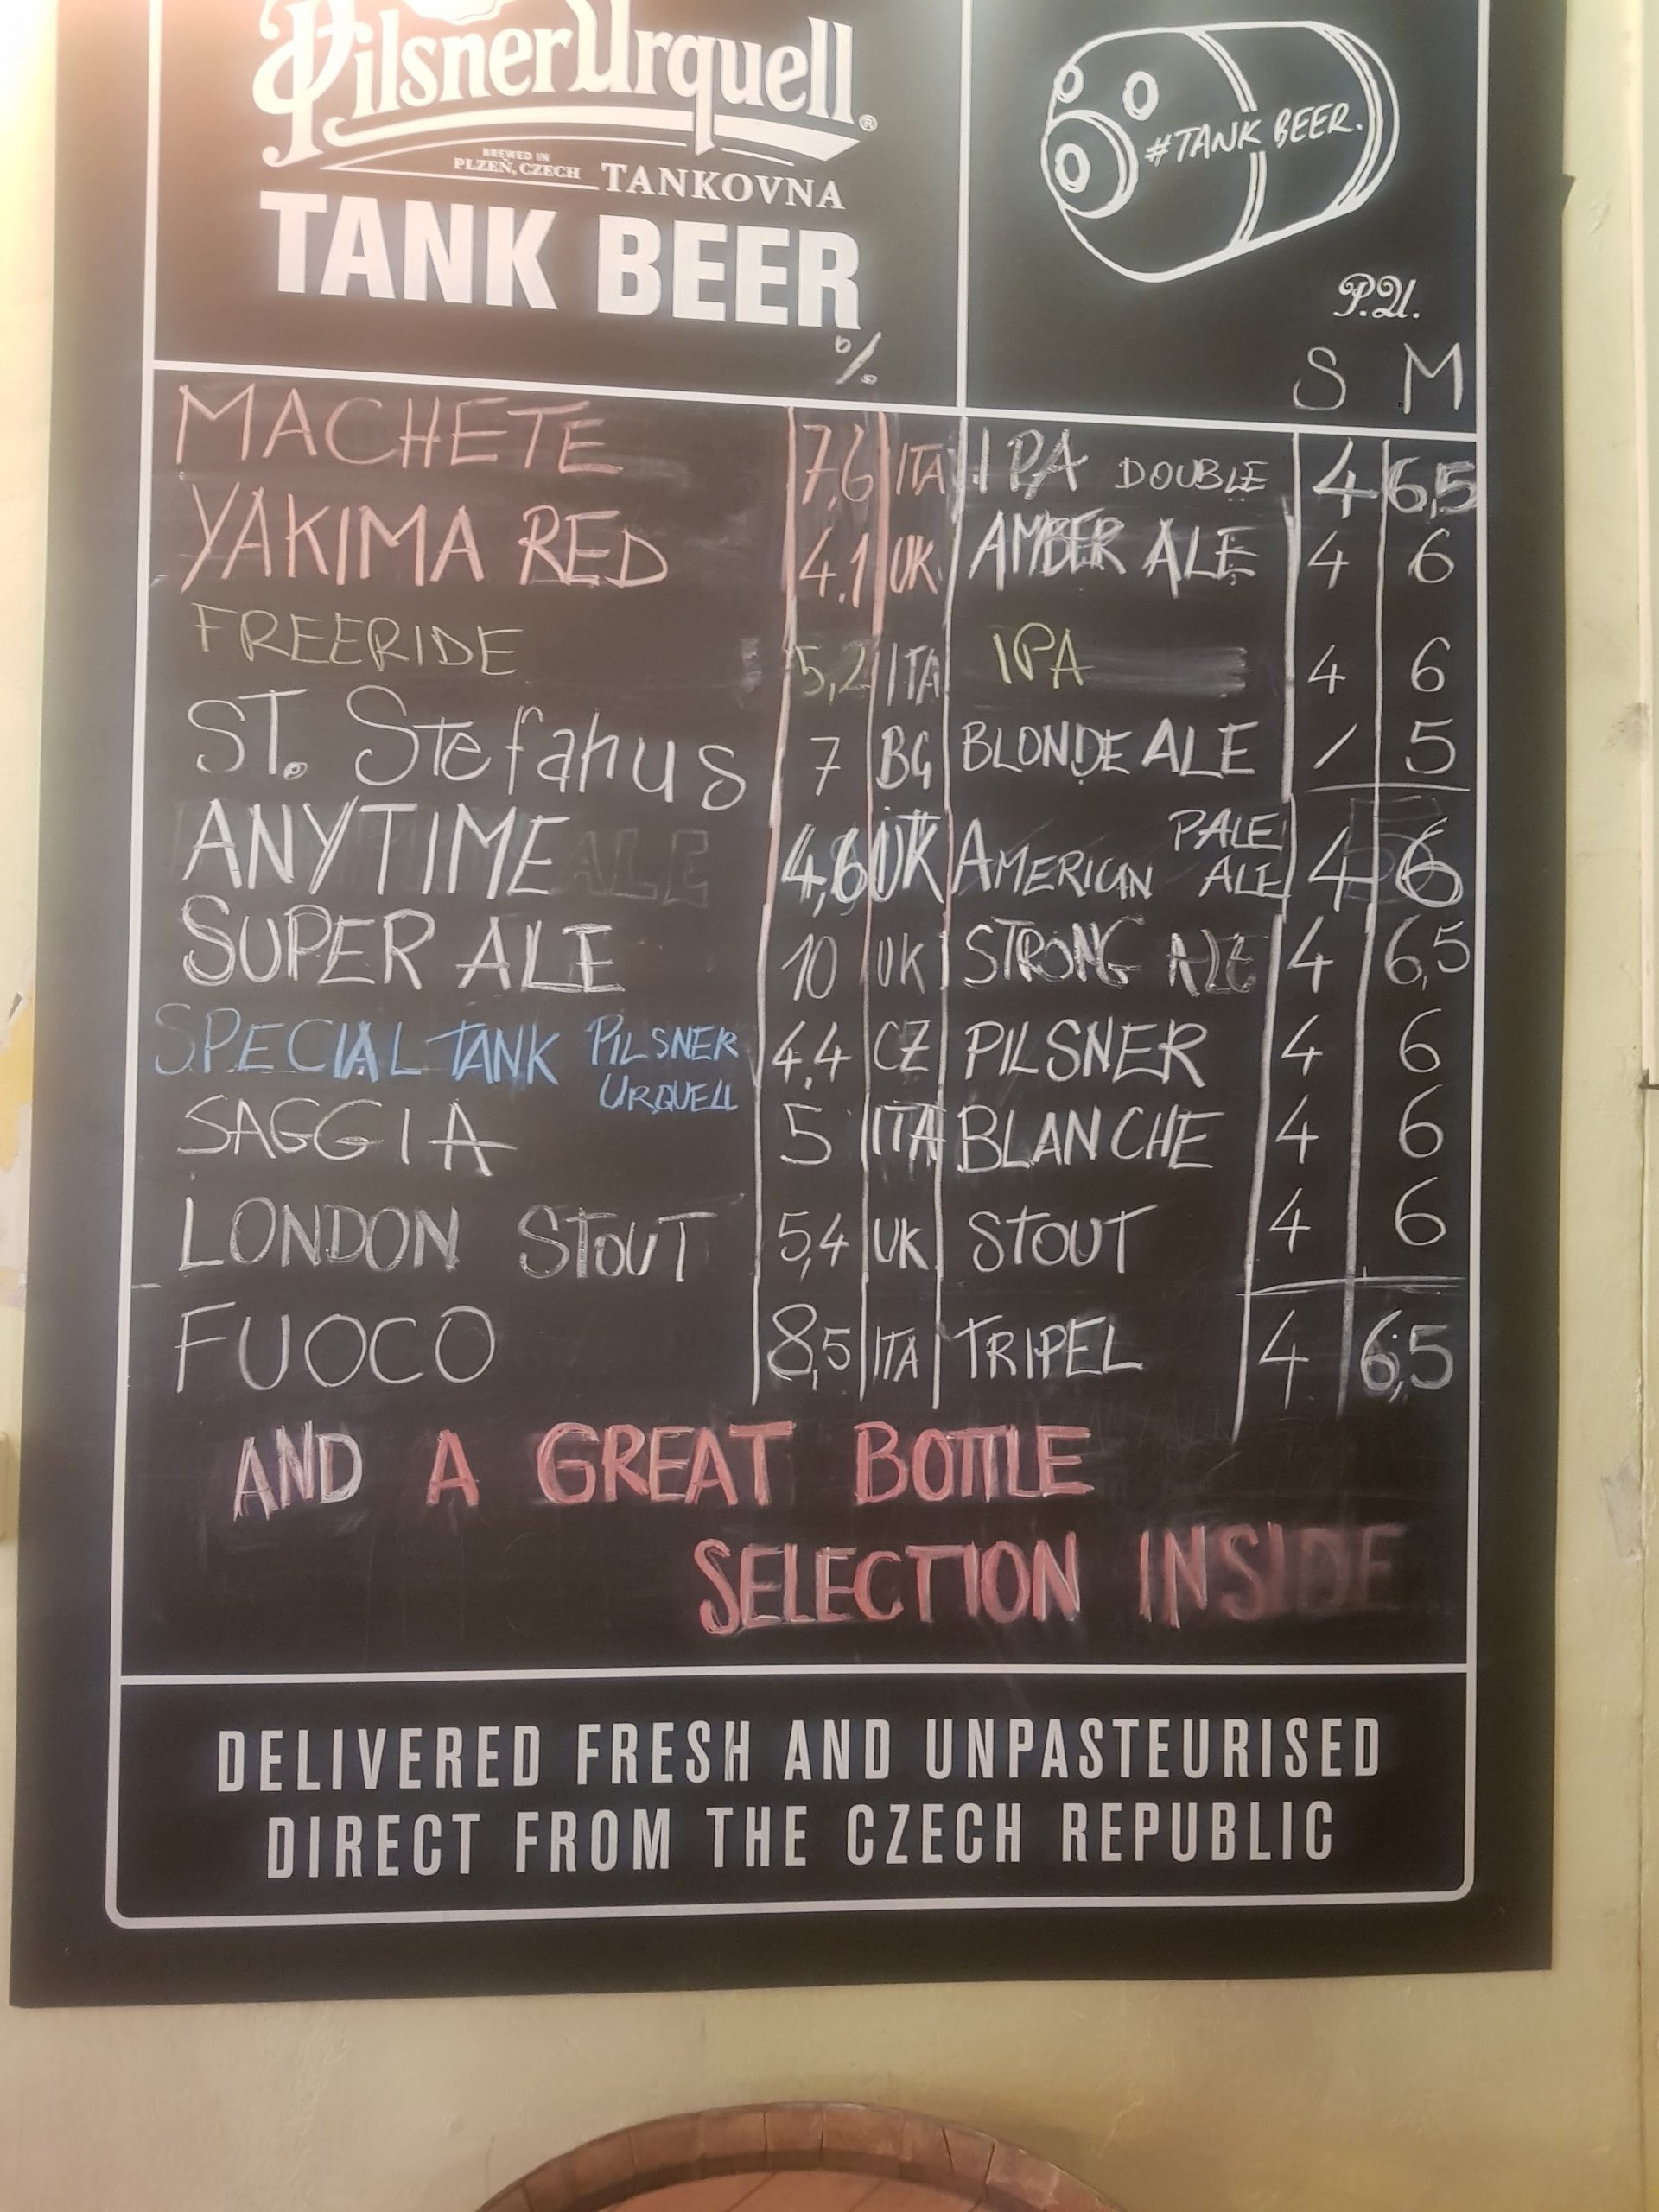 Pilsner Urquell®
BREWED IN
PLZEŇ, CZECH TANKOVNA
TANK BEER
#TANK BEER.
P.U.
% S M
MACHETE 7,6 ITA IPA DOUBLE 4 6,5
YAKIMA RED 4.1 UK AMBER ALE 4 6
FREERIDE 5,2 ITA IPA 4 6
ST. Stefanus 7 BG BLONDE ALE / 5
ANYTIME ALE 4,6 UK AMERICAN PALE ALE 4 6
SUPER ALE 10 UK STRONG ALE 4 6,5
SPECIAL TANK PILSNER URQUELL 4.4 CZ PILSNER 4 6
SAGGIA 5 ITA BLANCHE 4 6
LONDON STOUT 5,4 UK STOUT 4 6
FUOCO 8,5 ITA TRIPEL 4 6,5
AND A GREAT BOTTLE
SELECTION INSIDE
DELIVERED FRESH AND UNPASTEURISED
DIRECT FROM THE CZECH REPUBLIC